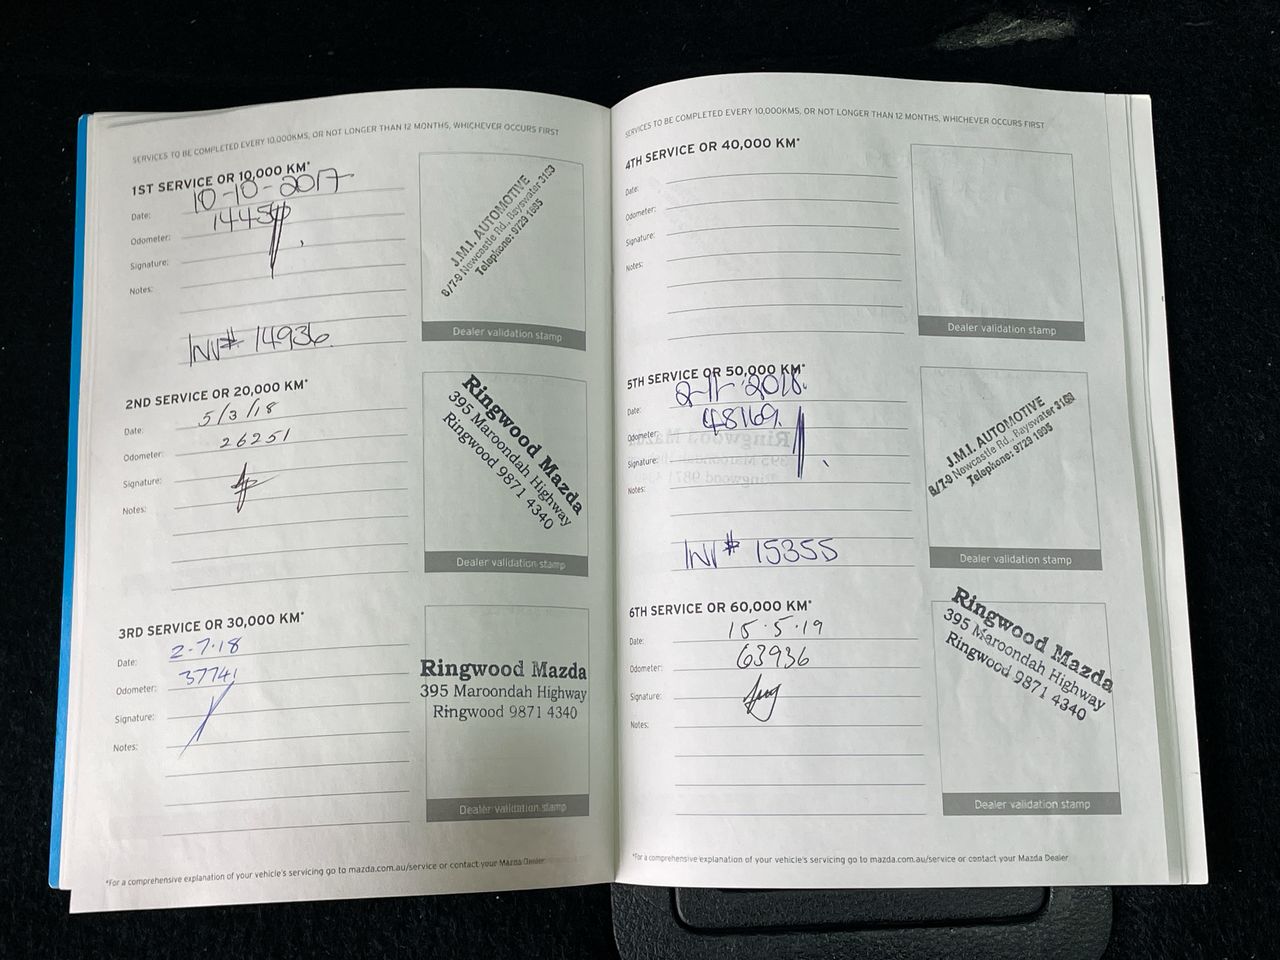 SERVICES TO BE COMPLETED EVERY 10,000KMS, OR NOT LONGER THAN 12 MONTHS, WHICHEVER OCCURS FIRST
1ST SERVICE OR 10,000 KM*
Date: 10-10-2017
Odometer: 14454
Signature:
Notes:
INV# 14936
J.M.I. AUTOMOTIVE
8/7-9 Newcastle Rd., Bayswater 3153
Telephone: 9729 1695
Dealer validation stamp
2ND SERVICE OR 20,000 KM*
Date: 5/3/18
Odometer: 26251
Signature:
Notes:
Ringwood Mazda
395 Maroondah Highway
Ringwood 9871 4340
Dealer validation stamp
3RD SERVICE OR 30,000 KM*
Date: 2-7-18
Odometer: 37741
Signature:
Notes:
Ringwood Mazda
395 Maroondah Highway
Ringwood 9871 4340
Dealer validation stamp
*For a comprehensive explanation of your vehicle's servicing go to mazda.com.au/service or contact your Mazda Dealer
SERVICES TO BE COMPLETED EVERY 10,000KMS, OR NOT LONGER THAN 12 MONTHS, WHICHEVER OCCURS FIRST
4TH SERVICE OR 40,000 KM*
Date:
Odometer:
Signature:
Notes:
Dealer validation stamp
5TH SERVICE OR 50,000 KM*
Date: 2-11-2018.
Odometer: 48169.
Signature:
Notes:
INV# 15355
J.M.I. AUTOMOTIVE
8/7-9 Newcastle Rd., Bayswater 3153
Telephone: 9729 1695
Dealer validation stamp
6TH SERVICE OR 60,000 KM*
Date: 15.5.19
Odometer: 63936
Signature:
Notes:
Ringwood Mazda
395 Maroondah Highway
Ringwood 9871 4340
Dealer validation stamp
*For a comprehensive explanation of your vehicle's servicing go to mazda.com.au/service or contact your Mazda Dealer